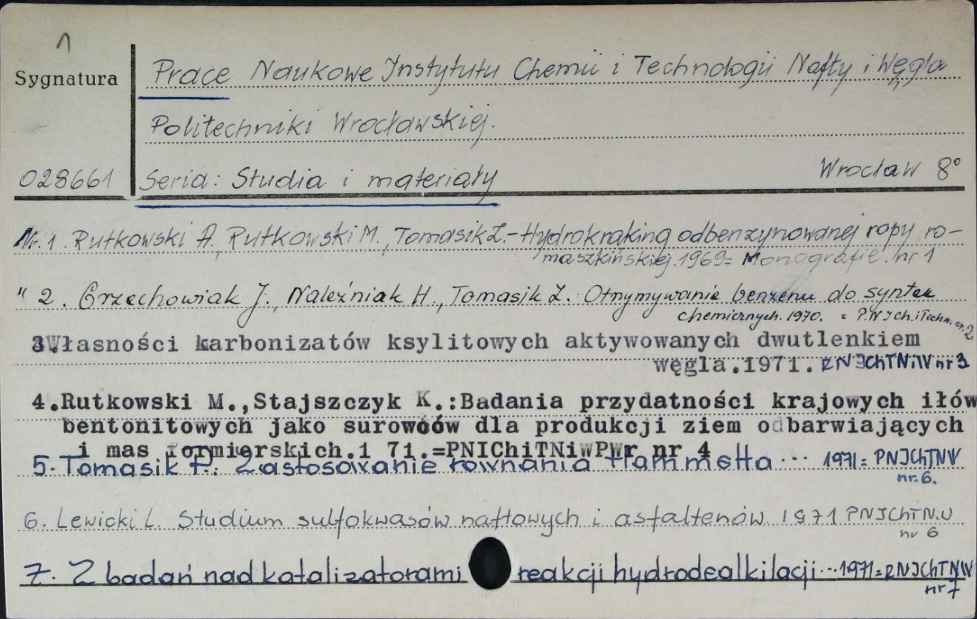 1
Sygnatura
Prace Naukowe Instytutu Chemii i Technologii Nafty i Węgla
Politechniki Wrocławskiej.
028661
Seria: Studia i materiały
Wrocław 8°
Nr. 1. Rutkowski A, Rutkowski M., Tomasik Z.- Hydrokraking odbenzynowanej ropy ro-
maszkińskiej. 1969= Monografie. nr 1
" 2. Grzechowiak J., Naleźniak H., Tomasik Z. Otrzymywanie benzenu do syntez
chemicznych. 1970. = P.N I Ch. i Techn. nr. 2
3Własności karbonizatów ksylitowych aktywowanych dwutlenkiem
węgla.1971. PNIChTNiW nr 3
4.Rutkowski M.,Stajszczyk K.:Badania przydatności krajowych iłów
bentonitowych jako surowców dla produkcji ziem odbarwiających
i mas formierskich.1 71.=PNIChiTNiWPWr nr 4
5. Tomasik P. Zastosowanie równania Hammetta ... 1971= PNIChTNW
nr. 6.
6. Lewicki L. Studium sulfokwasów naftowych i asfaltenów. 1971 PNIChTN.W
nr 6
7. Z badań nad katalizatorami reakcji hydrodealkilacji ... 1971= PNIChTNW
nr 7